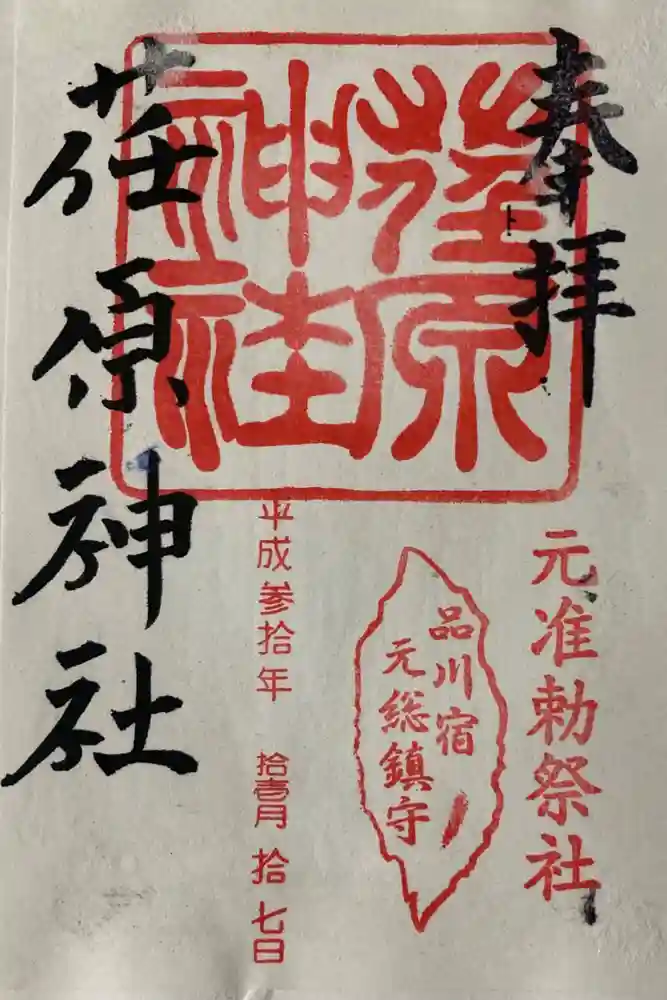 奉拝
元准勅祭社
荏原
神社
品川宿
元総鎮守
平成参拾年 拾壱月 拾七日
荏原神社